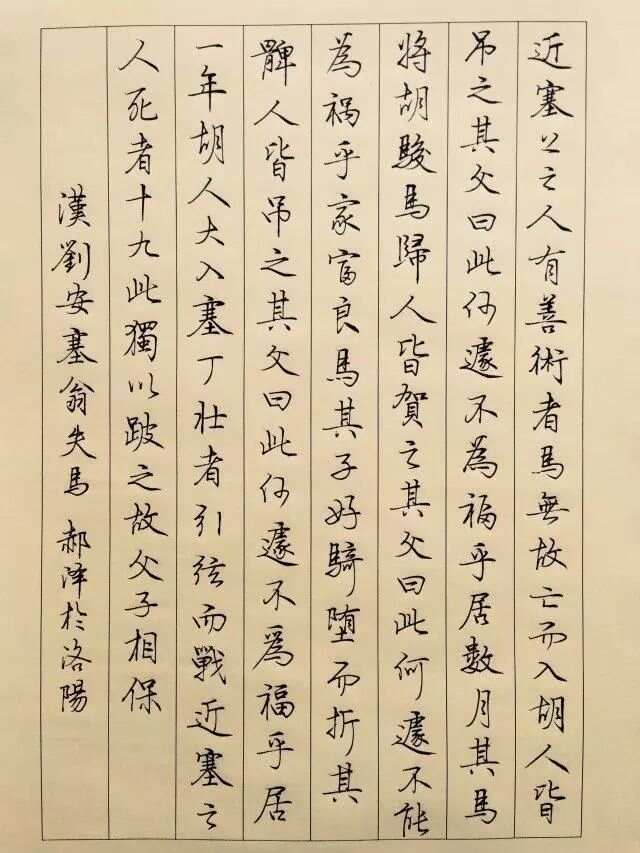 近塞上之人有善術者馬無故亡而入胡人皆
吊之其父曰此何遽不為福乎居數月其馬
將胡駿馬歸人皆賀之其父曰此何遽不能
為禍乎家富良馬其子好騎堕而折其
髀人皆吊之其父曰此何遽不爲福乎居
一年胡人大入塞丁壯者引弦而戰近塞之
人死者十九此獨以跛之故父子相保
漢劉安塞翁失馬 郝泽於洛陽